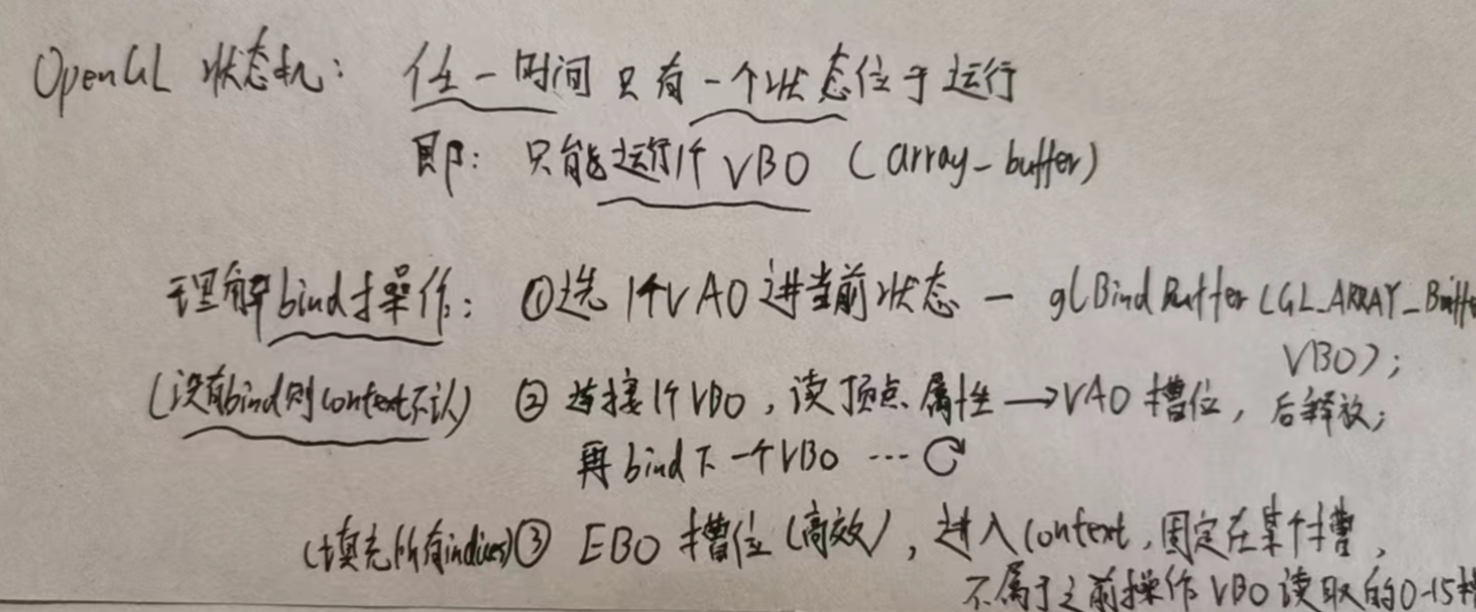 OpenGL 状态机： 任一时间只有一个状态位于运行
即： 只能运行1个 VBO (array_buffer)
理解bind操作： ①选1个VAO进当前状态 — glBindBuffer (GL_ARRAY_Buffe
VBO);
(没有bind则context不认) ② 连接1个VBO，读顶点属性 → VAO 槽位，后释放；
再 bind下一个VBO …
(填充所有indices) ③ EBO 槽位 (高效)，进入context，固定在某个槽，
不属于之前操作 VBO 读取的0-15